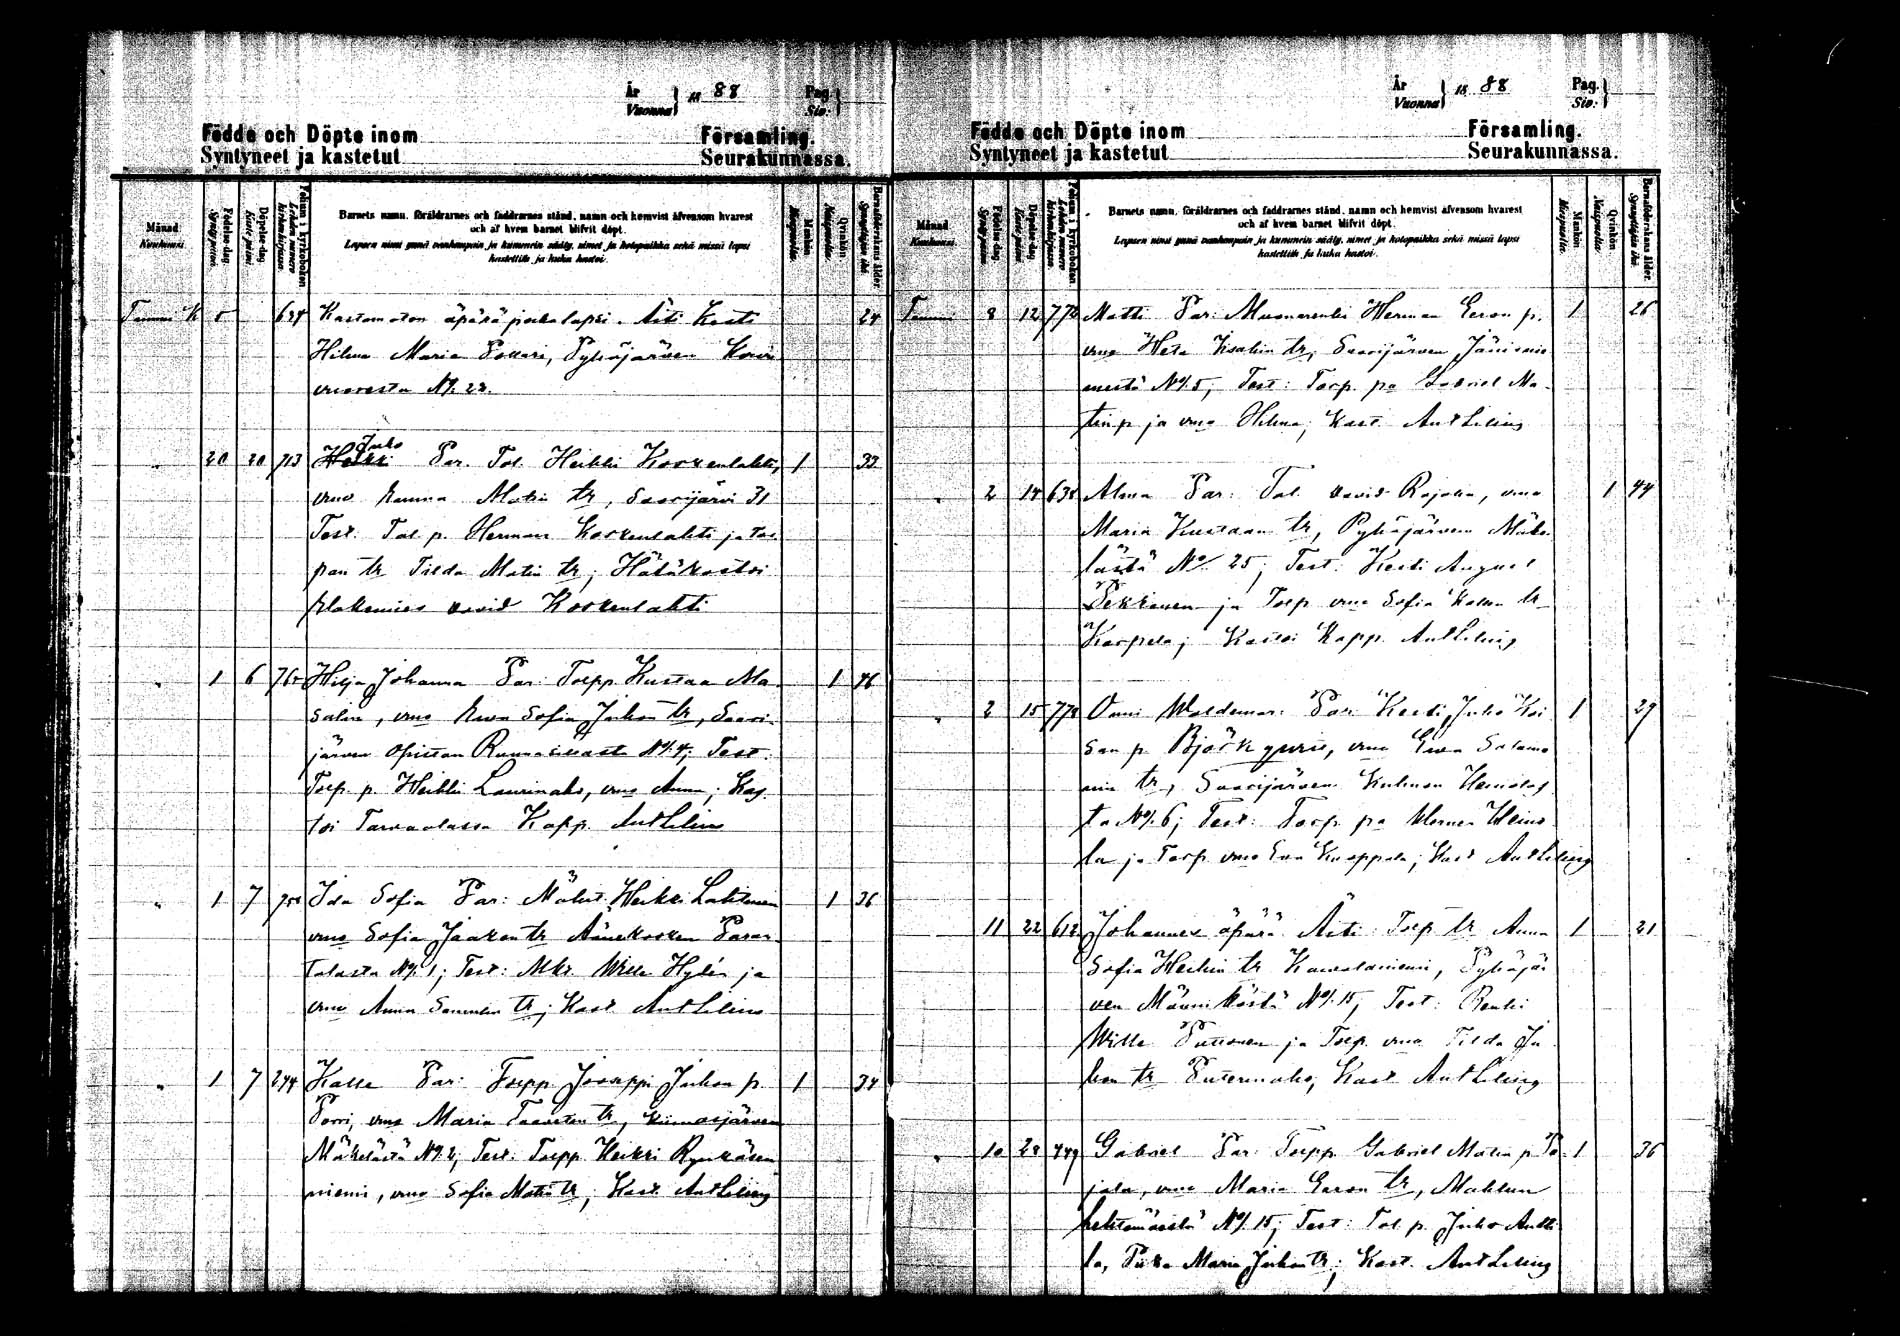 År
Vuonna } 18 88
Pag.
Siv. }
Födde och Döpte inom Församling.
Syntyneet ja kastetut Seurakunnassa.
Månad
Kuukausi.
Födelse-dag
Syntymä päivä
Döpelse-dag
Kaste päivä
Folium i kyrkoboken
Lehden numero kirkonkirjassa.
Barnets namn, föräldrarnes och faddrarnes stånd, namn och hemvist äfvensom hvarest
och af hvem barnet blifvit döpt.
Lapsen nimi ynnä vanhempain ja kummein sääty, nimet ja kotopaikka sekä missä lapsi
kastettiin ja kuka kastoi.
Mankön
Miespuolia.
Qvinkön
Naispuolia.
Barnaföderskans ålder.
Synnyttäjän ikä.
Tammi K 5 634 Kastamaton äpärä poikalapsi. Äiti Kesti 24
Hilma Maria Pollari, Pyhäjärven
vuoresta N:o 22.
Juho
" 20 20 713 Heikki Var. Tal. Heikki Koskenlahti, 1 33
vmo Emma Matin tr, Saarijärvi 31
Test. Tal. p. Herman Koskenlahti ja tal
pan tr Tilda Matin tr; Hätäkastoi
David Koskenlahti
" 1 6 Hilja Johanna Var: Torpp. Kustaa Ma- 1 46
salin, vmo Ewa Sofia Juhon tr, Saari-
järven N:o 4; Test:
Torp. p. Heikki Laurinaho, vmo Anna; Kas
toi Tarvaalassa Kapp. Ant Lilius
" 1 7 Ida Sofia Var: Mökit. Heikki Lahtinen 1 36
vmo Sofia Jaakon tr Äänekosken Paran
talasta N:o 1; Test: Mkr Wille Hylén ja
vmo Anna tr; Kast Ant Lilius
" 1 7 244 Kalle Var: Torpp Joseppi Juhon p. 1 34
Porri, vmo Maria Taavetin tr,
Mäkelästä N:o 2; Test: Torpp. Heikki Rynkäsen
niemi, vmo Sofia Matin tr; Kast. Ant Lilius
År
Vuonna } 18 88
Pag.
Siv. }
Födde och Döpte inom Församling.
Syntyneet ja kastetut Seurakunnassa.
Månad
Kuukausi.
Födelse-dag
Syntymä päivä
Döpelse-dag
Kaste päivä
Folium i kyrkoboken
Lehden numero kirkonkirjassa.
Barnets namn, föräldrarnes och faddrarnes stånd, namn och hemvist äfvensom hvarest
och af hvem barnet blifvit döpt.
Lapsen nimi ynnä vanhempain ja kummein sääty, nimet ja kotopaikka sekä missä lapsi
kastettiin ja kuka kastoi.
Mankön
Miespuolia.
Qvinkön
Naispuolia.
Barnaföderskans ålder.
Synnyttäjän ikä.
Tammi 8 12 Matti Var: Muonarenki Herman Eeron p. 1 26
vmo Heta Iisakin tr; Saarijärven Jänisnie
mestä N:o 5; Test: Torp. pa Gabriel Ma-
tin p ja vmo Hilma; Kast Ant Lilius
" 2 14 638 Alma Var: Tal. David Rajala, vmo 1 44
Maria Kustaan tr, Pyhäjärven Mäke-
lästä N:o 25; Test: Kesti August
Pekkonen ja Torp vmo Sofia Kallen tr
Karpela; Kastoi Kapp. Ant Lilius
" 2 15 778 Onni Waldemar Var: Kesti Juho Kai 1 29
san p. Björkqwist, vmo Ewa Salamo
nin tr, Saarijärven Kulman
ta N:o 6; Test: Torp. pa Werner Heino-
la ja Torp vmo Eva Knoppala; Kast Ant Lilius
11 22 612 Johannes äpärä Äiti: Torp tr Anna 1 21
Sofia Heikin tr Kauvalaniemi, Pyhäjär
ven Männiköstä N:o 15; Test: Renki
Wille Puttonen ja Torp. vmo Tilda Ju
hon tr; Kast Ant Lilius
" 10 28 449 Gabriel Var: Torpp Gabriel Matin p. Po- 1 36
jala, vmo Maria Eeron tr, Mahlun
N:o 15; Test: Tal. p. Juho Antti-
la, Piika Maria Juhon tr; Kast. Ant Lilius